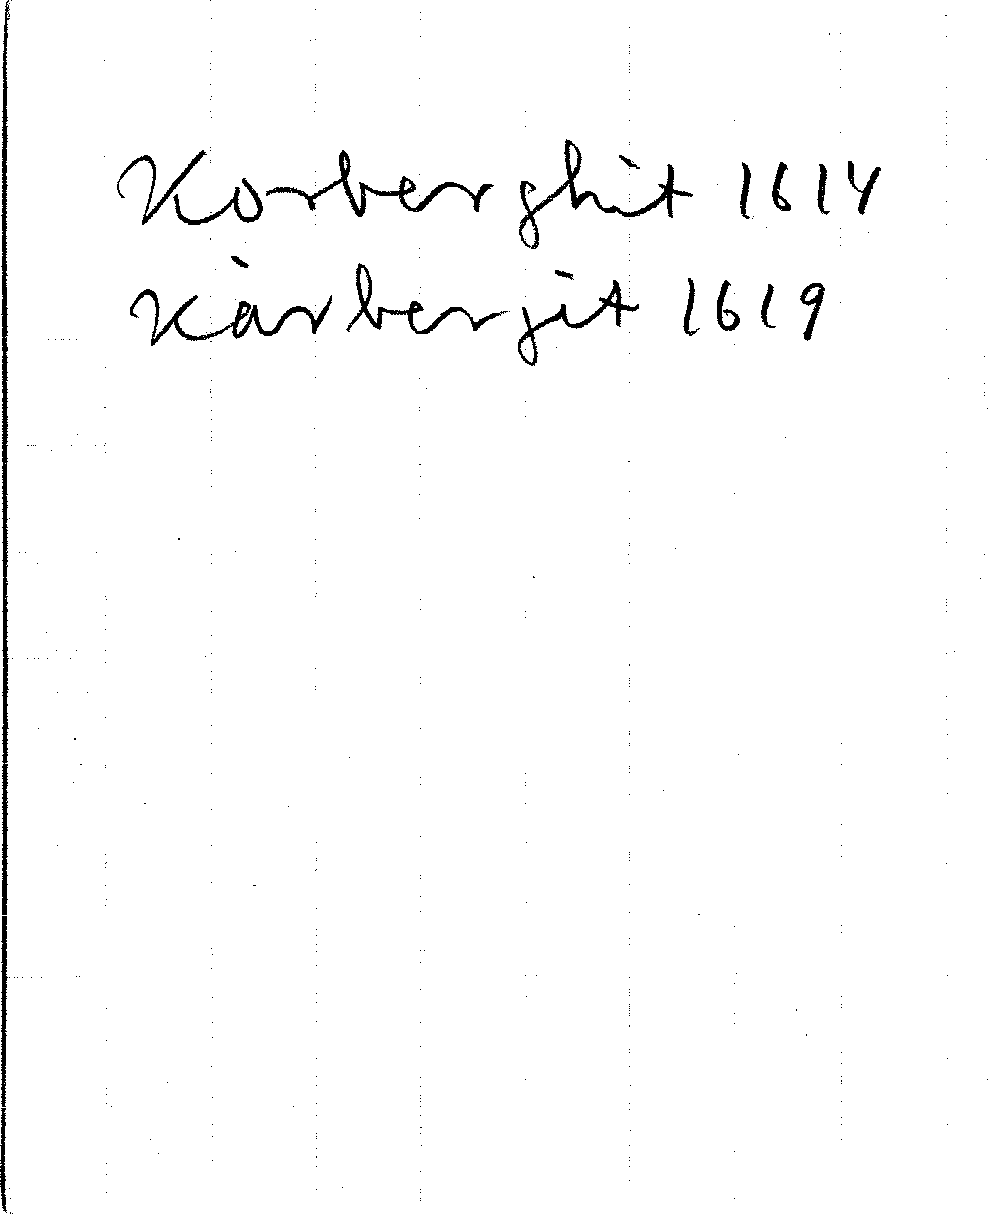 Korberghit 1614
Kårbergit 1619